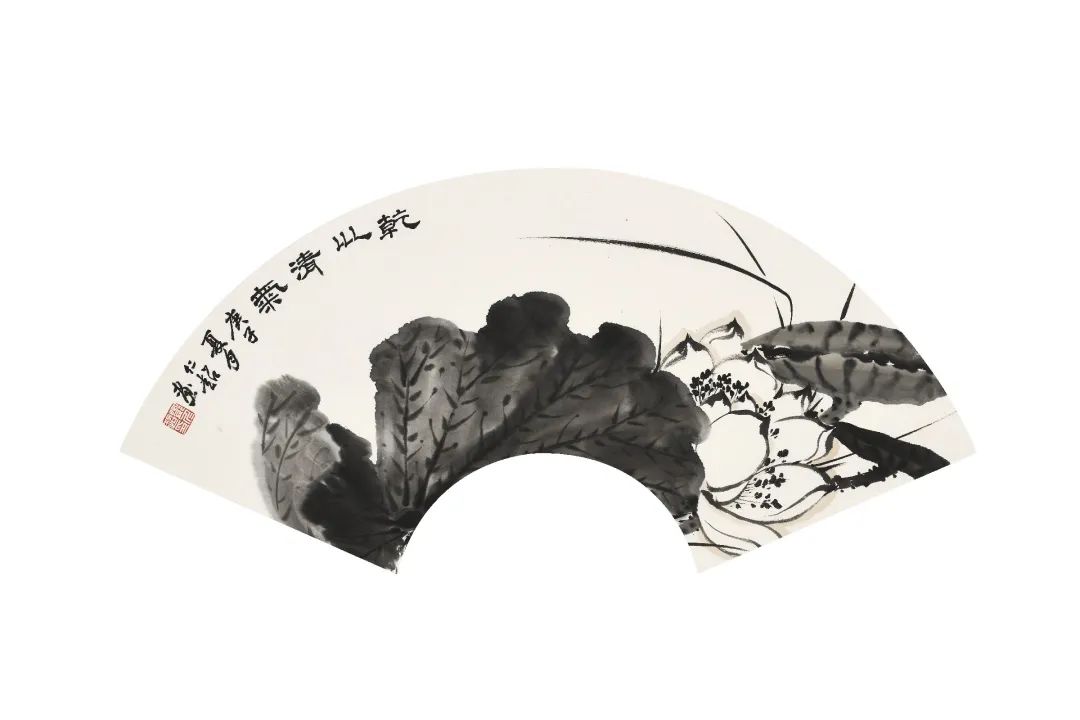 乾坤清氣
庚子
夏月
仁
畫